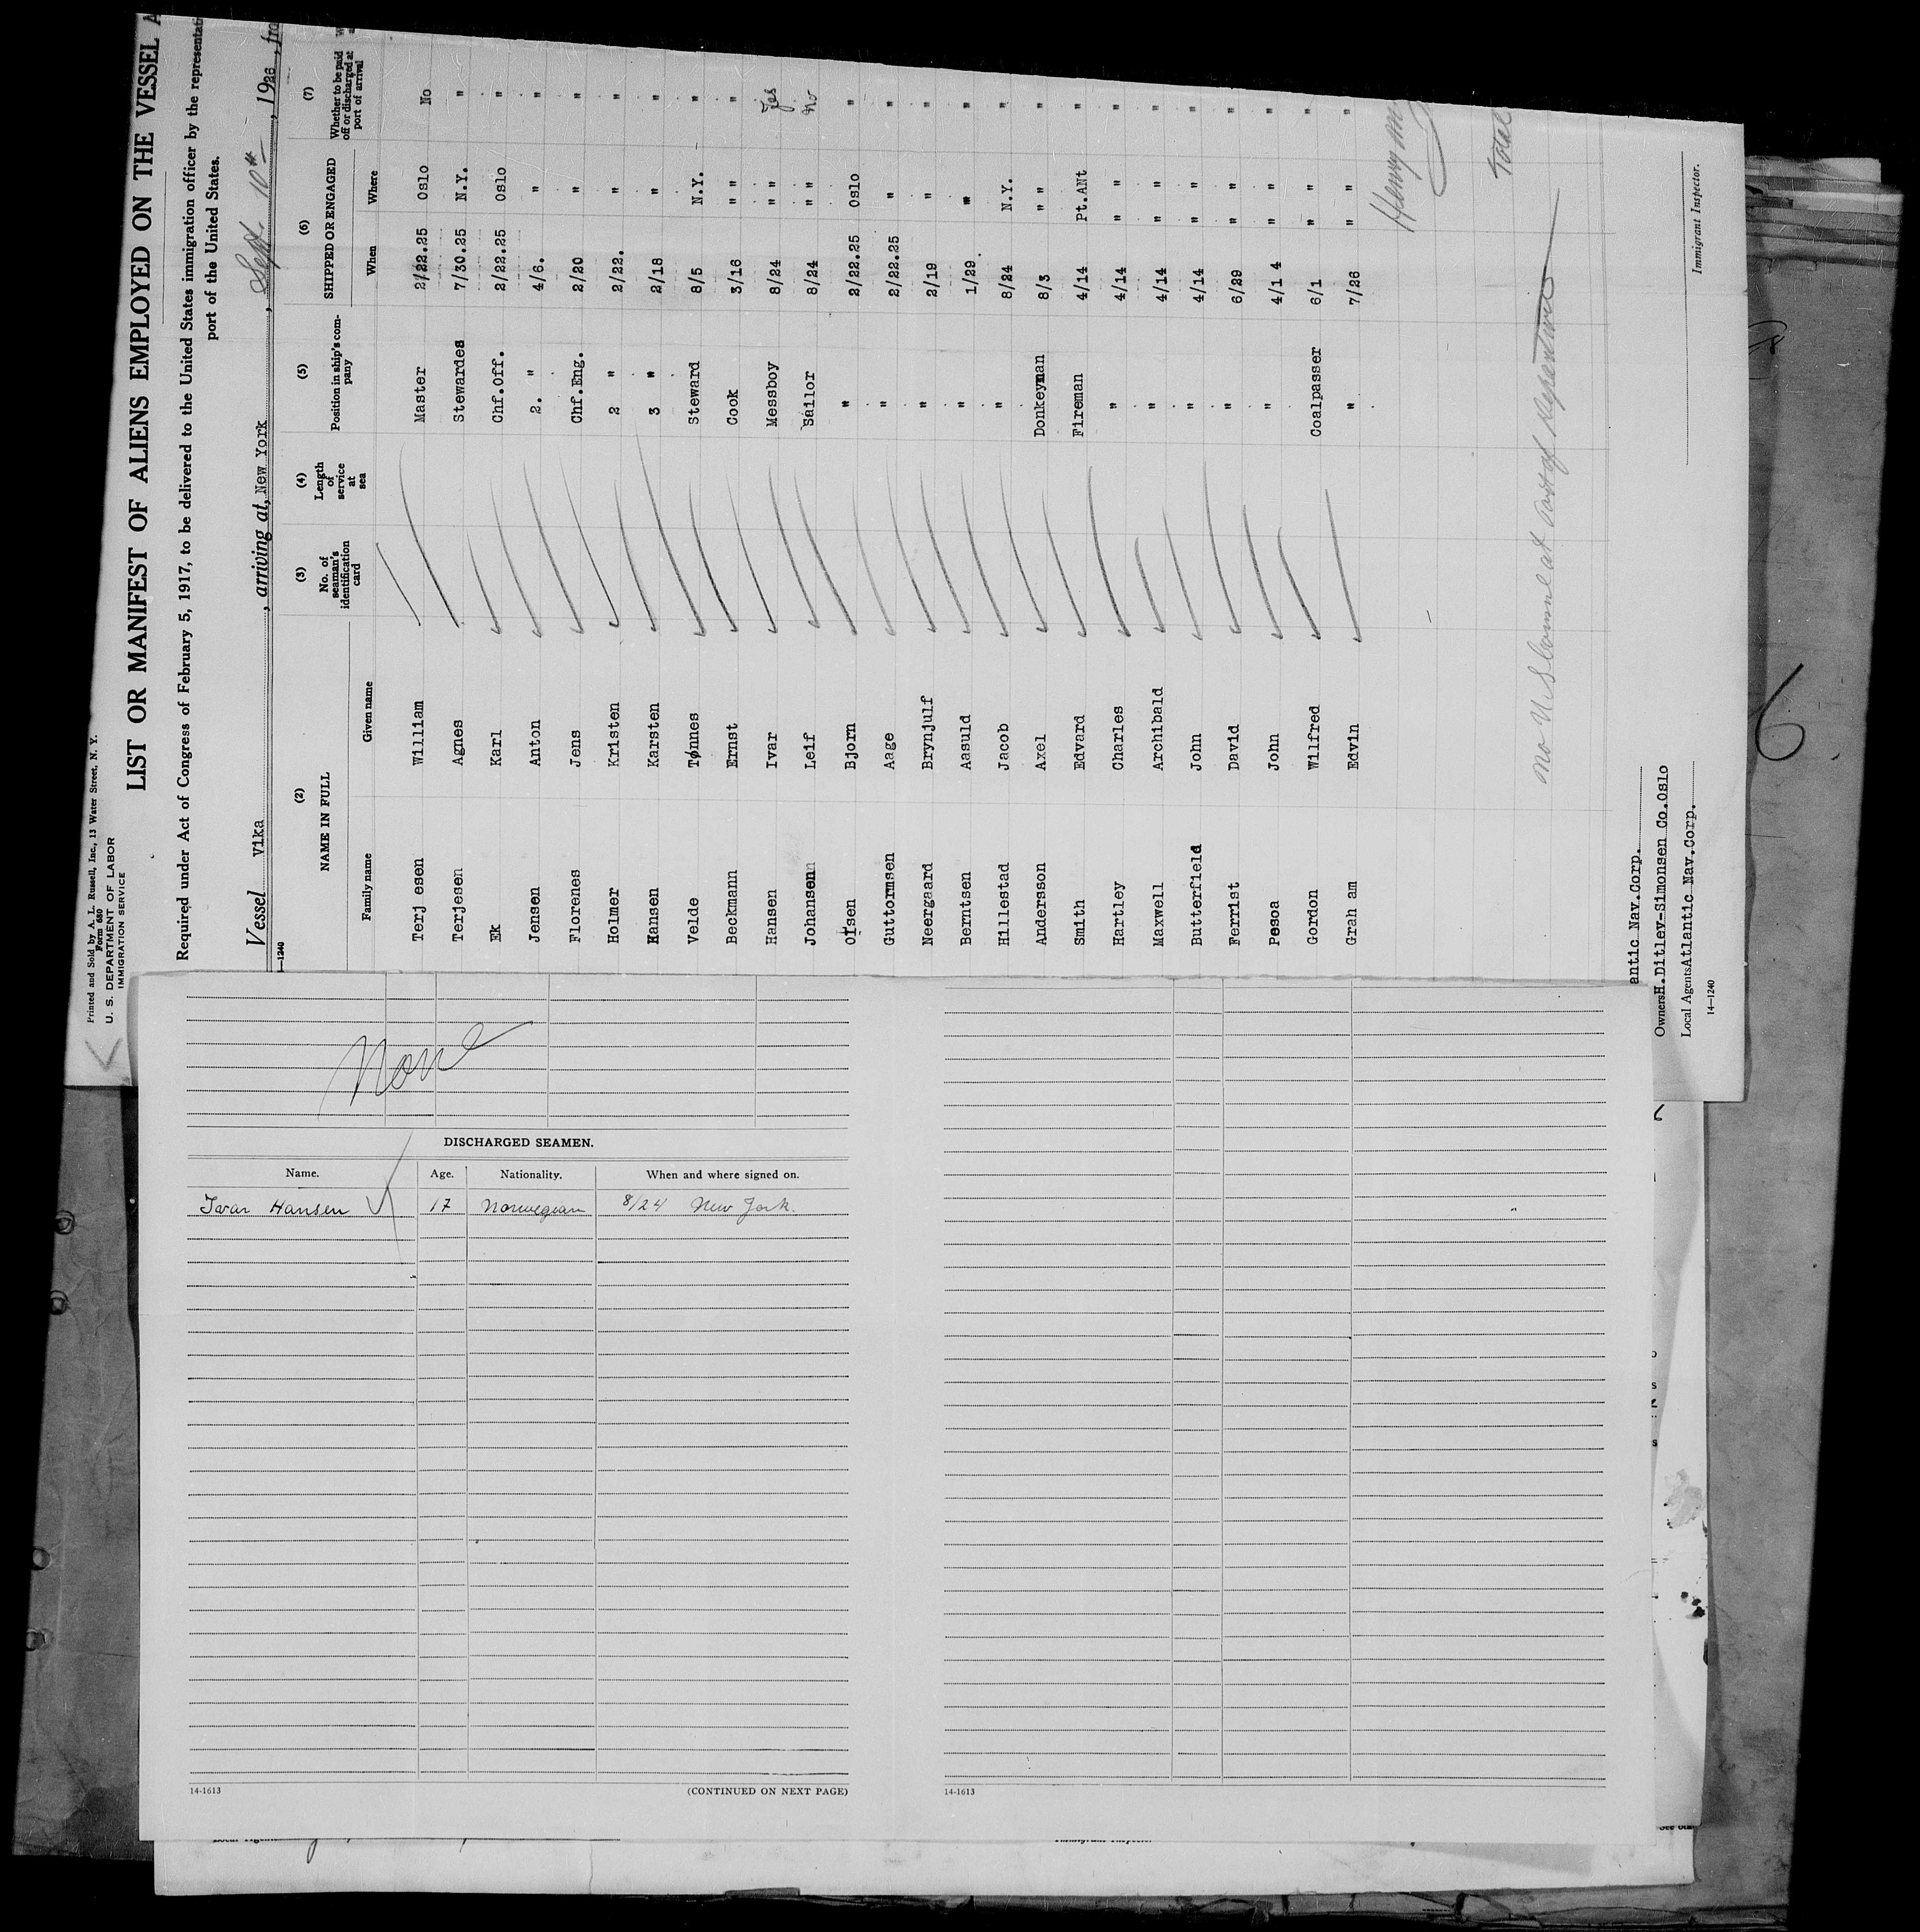 Printed and Sold by A. L. Russell, Inc., 13 Water Street, N. Y.
Form 680
U. S. DEPARTMENT OF LABOR
IMMIGRATION SERVICE
LIST OR MANIFEST OF ALIENS EMPLOYED ON THE VESSEL A
Required under Act of Congress of February 5, 1917, to be delivered to the United States immigration officer by the representati
port of the United States.
Vessel Vika, arriving at, New York, Sept. 10th, 1926, fro
14-1240
(2) (3) (4) (5) (6) (7)
NAME IN FULL No. of seaman's identification card Length of service at sea Position in ship's company SHIPPED OR ENGAGED Whether to be paid off or discharged at port of arrival
Family name Given name When Where
Terjesen William Master 2/22.25 Oslo No
Terjesen Agnes Stewardes 7/30.25 N.Y. "
Ek Karl Chf.Off. 2/22.25 Oslo "
Jensen Anton 2. " 4/6. " "
Florenes Jens Chf.Eng. 2/20 " "
Holmer Kristen 2 " 2/22. " "
Hansen Karsten 3 " 2/18 " "
Velde Tønnes Steward 8/5 N.Y. "
Beckmann Ernst Cook 3/16 " " "
Hansen Ivar Messboy 8/24 " " Yes
Johansen Leif Sailor 8/24 " " No
Olsen Bjorn " 2/22.25 Oslo "
Guttormsen Aage " 2/22.25 " "
Neergaard Brynjulf " 2/19 " "
Berntsen Aasuld " 1/29. " "
Hillestad Jacob " 8/24 N.Y. "
Andersson Axel Donkeyman 8/3 " " "
Smith Edvard Fireman 4/14 Pt.ANt "
Hartley Charles " 4/14 " " "
Maxwell Archibald " 4/14 " " "
Butterfield John " 4/14 " " "
Ferrist David " 6/29 " " "
Pesoa John " 4/14 " " "
Gordon Wilfred Coalpasser 6/1 " " "
Graham Edvin " 7/26 " " "
Henry
Total
no U S Consul at Port of Departure
antic Nav.Corp.
Owners H.Ditlev-Simonsen Co.Oslo
Local Agents Atlantic Nav.Corp.
Immigrant Inspector.
14-1240
6
None
DISCHARGED SEAMEN.
Name. Age. Nationality. When and where signed on.
Ivar Hansen 17 Norwegian 8/24 New York.
14-1613
(CONTINUED ON NEXT PAGE)
14-1613